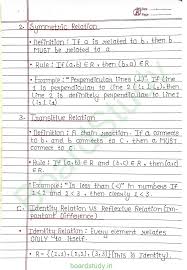 2. Symmetric Relation
• Definition: If a is related to b, then b
MUST be related to a.
• Rule: If (a,b) ∈ R, then (b,a) ∈ R.
• Example: "Perpendicular lines (⊥)". If Line
1 is perpendicular to line 2 (L1⊥L2), then
Line 2 is definitely perpendicular to line1
3. Transitive Relation
• Definition: A chain reaction. If a connects
to b, and b connects to c, then a MUST
connect to c.
• Rule: If (a,b) ∈ R and (b,c) ∈ R, then (a,c)
∈ R.
• Example: "Is less than (<)" in numbers. If
2 and 3 <, then clearly 2 < 5.
C. Identity Relation VS Reflexive Relation (Im-
portant Difference)
• Identity Relation: Every element relates
ONLY to itself.
• R = {(1,1), (2,2), (3,3)} [This is Identity].
boardstudy.in